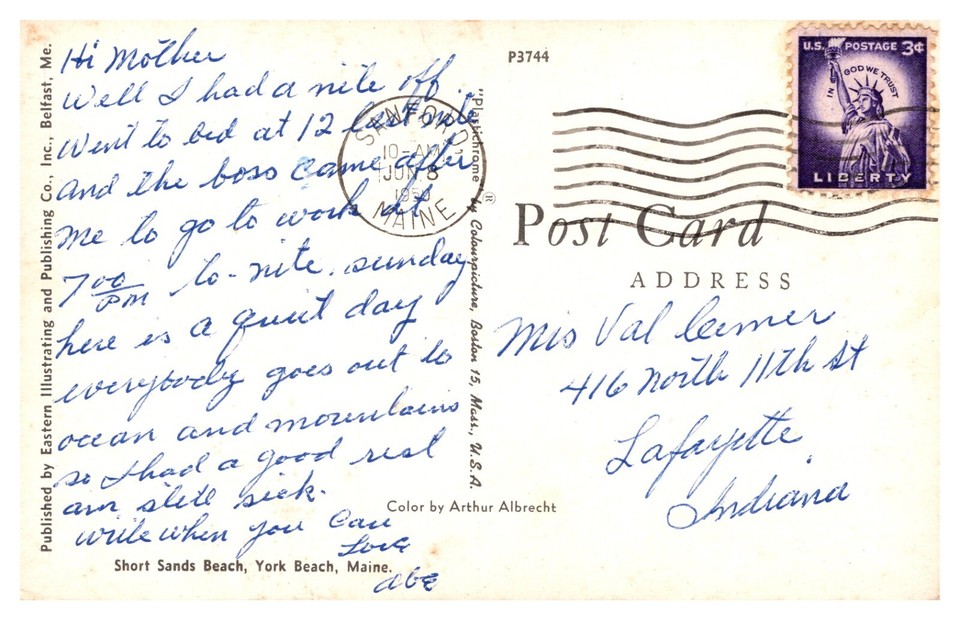 Hi Mother
Well I had a nite off.
Went to bed at 12 last nite
and the boss came after
me to go to work at
7 00 PM to-nite. sunday
here is a quiet day
everybody goes out to
ocean and mountains
so I had a good rest
am still sick.
write when you can
Love
abe
Short Sands Beach, York Beach, Maine.
Published by Eastern Illustrating and Publishing Co., Inc., Belfast, Me.
"Plastichrome" ® by Colourpicture, Boston 15, Mass., U.S.A.
Color by Arthur Albrecht
P3744
SANFORD,
10-AM
JUN 8
MAINE
U.S. POSTAGE 3¢
IN GOD WE TRUST
LIBERTY
Post Card
ADDRESS
Mis Val
416 North 11th St
Lafayette
Indiana